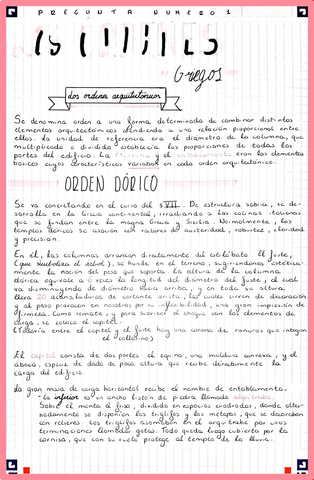 PREGUNTA NUMERO 1
Griegos
los ordenes arquitectónicos
Se denomina orden a una forma determinada de combinar distintos
elementos arquitectónicos atendiendo a una relación proporcional entre
ellos. La unidad de referencia era el diámetro de la columna, que
multiplicado o dividido establecía las proporciones de todas las
partes del edificio. La columna y el entablamento eran los elementos
básicos cuyas características variaban en cada orden arquitectónico.
ORDEN DÓRICO
Se va concretando en el curso del s VII. De estructura sobria, se de-
sarrolla en la Grecia continental, irradiando a las colinas
que se fundan entre la magna Grecia y Sicilia. Normalmente, los
templos dóricos se asocian con valores de austeridad, robustez, claridad
y precisión.
En él, las columnas arrancan directamente del estilóbato. El fuste,
se hunde en el terreno, sugiriendonos estética-
mente la noción del peso que soporta. La altura de la columna
dórica equivale a 6 veces la longitud del diámetro del fuste, el cual
va disminuyendo de diámetro hacia arriba, y en toda su altura
lleva 20 acanaladuras de cortante arista, las cuales sirven de decoración
y al paso provocan en nosotros por su inflexibilidad, una gran impresión de
firmeza. Como remate, y para suavizar el choque con los elementos de
carga, se coloca el capitel.
(Todavía entre el capitel y el fuste hay una corona de ranuras que integran
el collarino)
El capitel consta de dos partes: el equino, una moldura convexa, y el
ábaco, especie de dado de poca altura que recibe directamente la
carga del edificio.
La gran masa de carga horizontal recibe el nombre de entablamento.
- la inferior es un ancho listón de piedra llamado arquitrabe.
Sobre él monta el friso, dividido en espacios cuadrados, donde alter-
nadamente se disponían los triglifos y las metopas, que se decoraban
con relieves. Los triglifos asomaban en el arquitrabe por unas
terminaciones llamadas gotas. Todo queda luego cubierto por la
cornisa, que con su vuelo protege al templo de la lluvia.